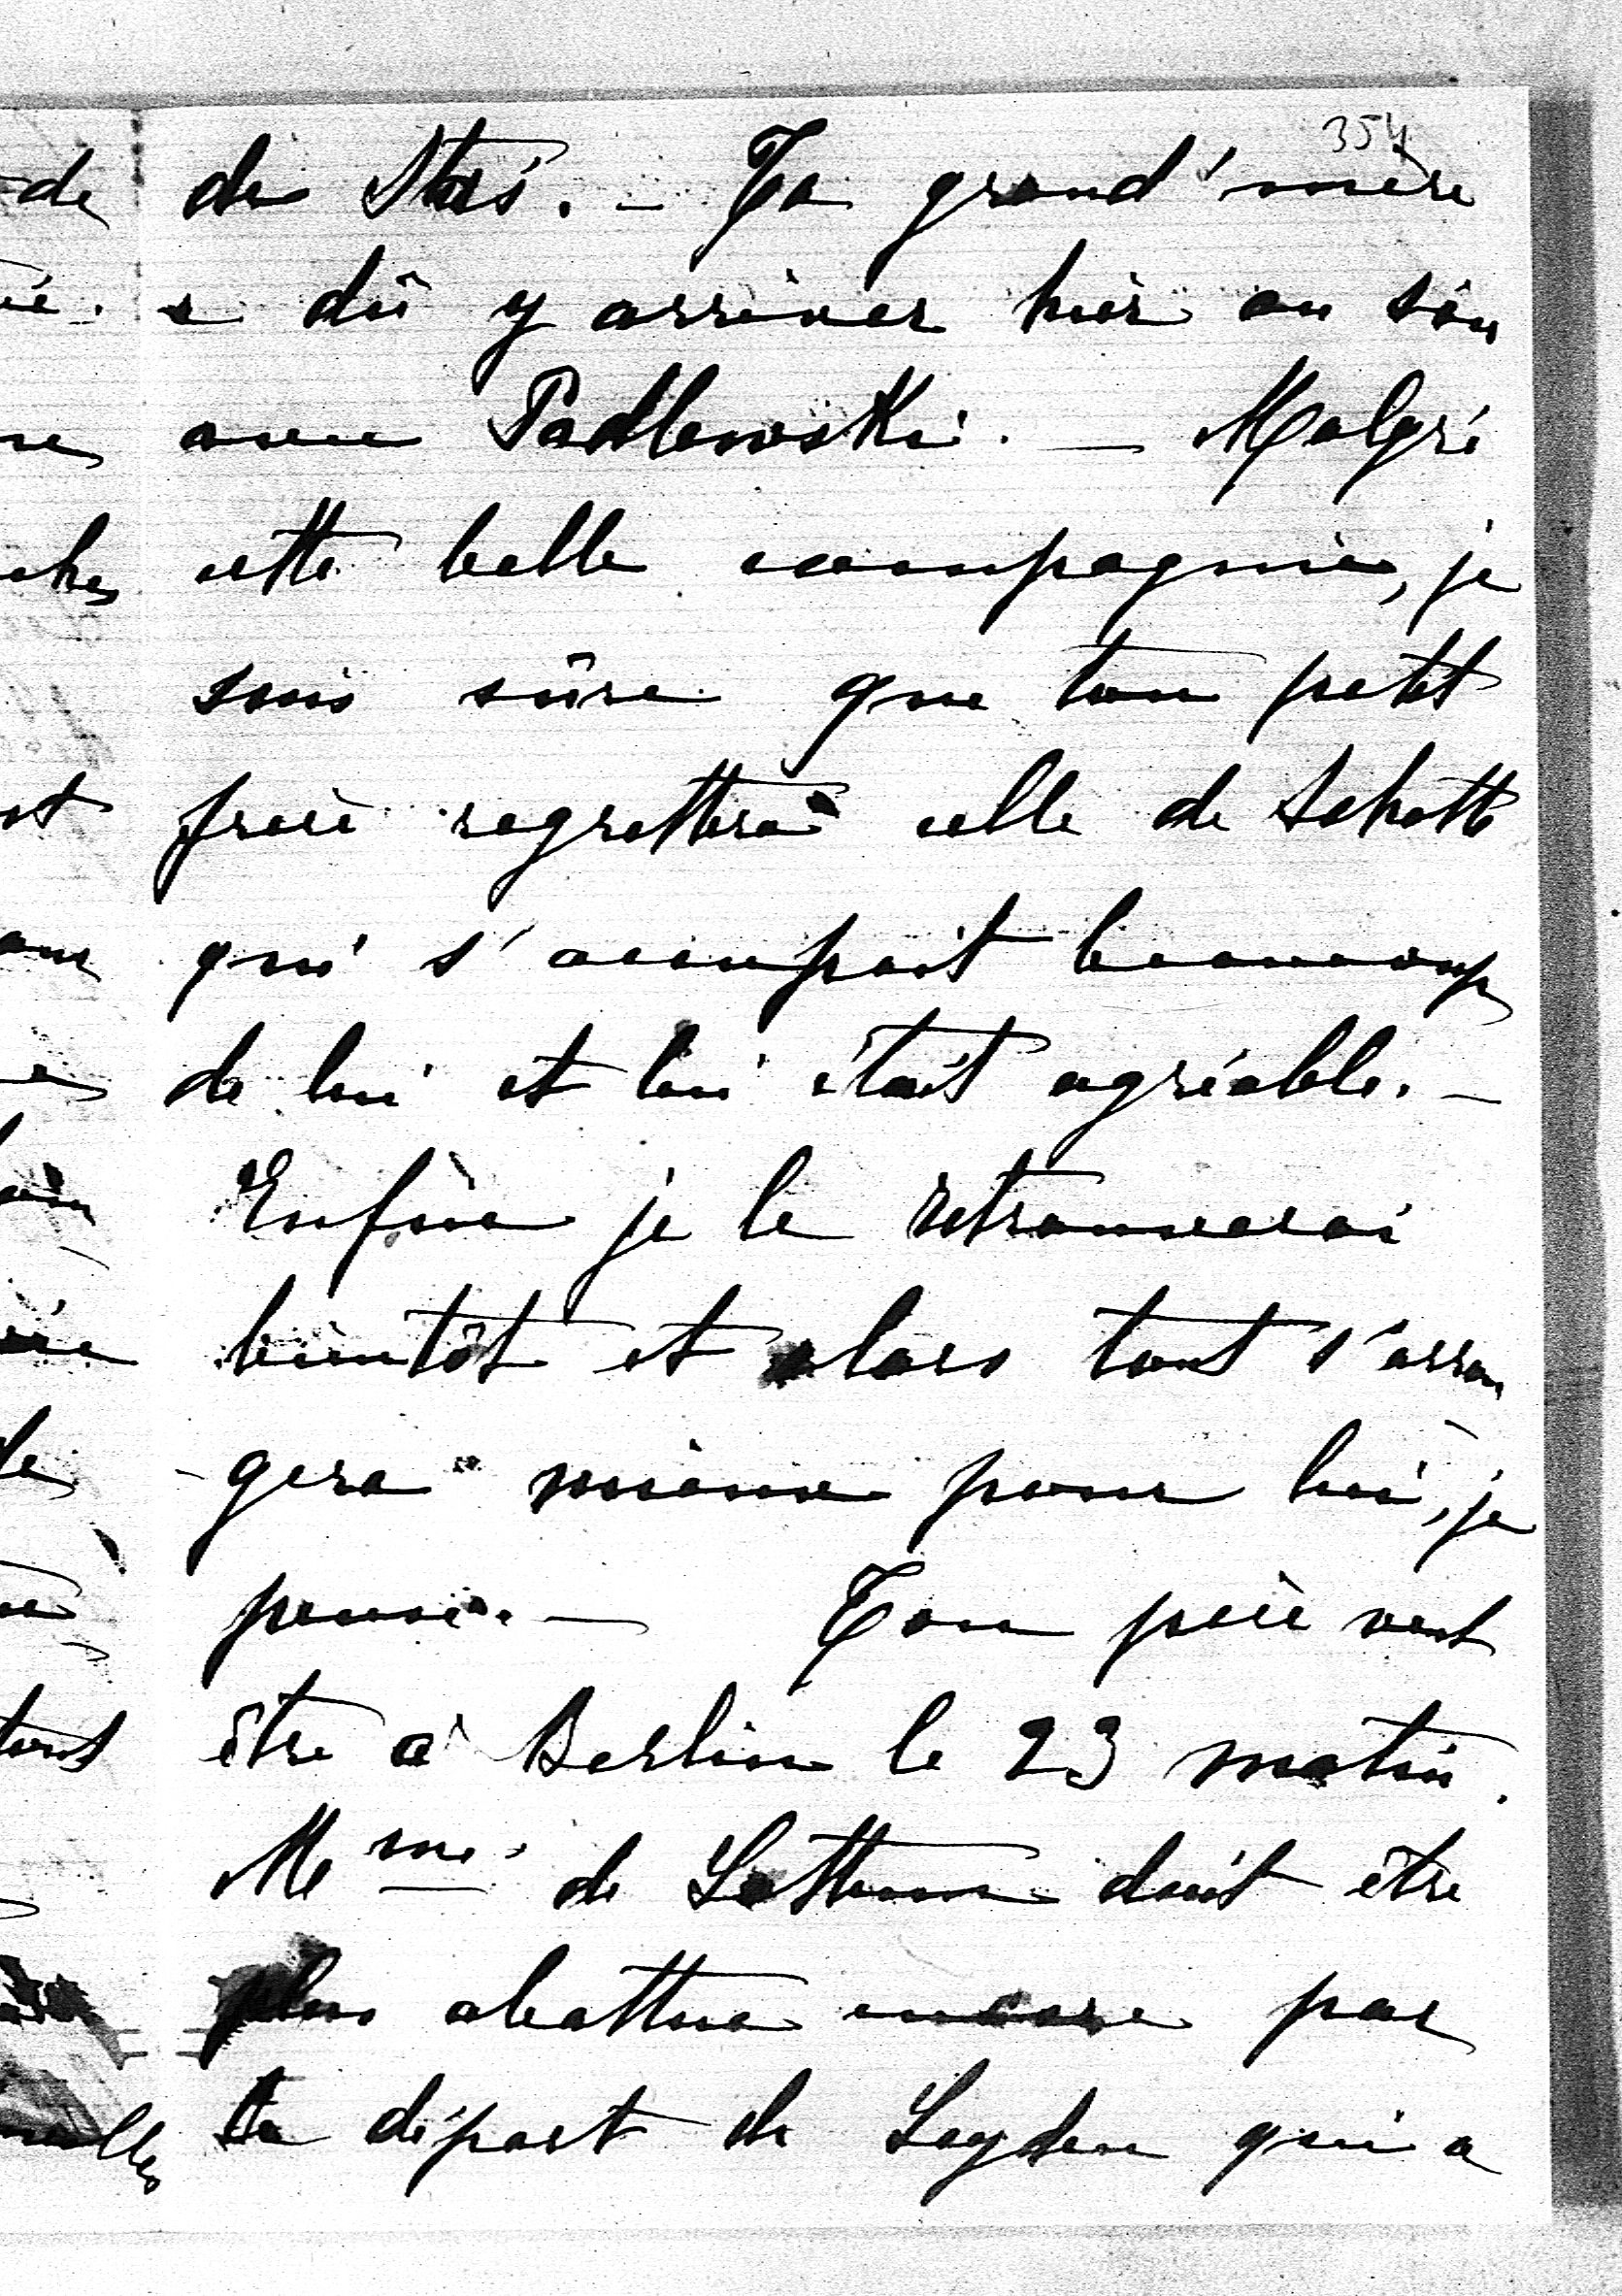 354
de Stas. — Ta grand'mère
a dû y arriver hier au soir
avec Padlewski. — Malgré
cette belle compagnie, je
suis sûre que ton petit
frère regrettera celle de Schott
qui s'occupait beaucoup
de lui et lui était agréable. —
Enfin je le retrouverai
bientôt et alors tout s'arran
-gera mieux pour lui, je
pense. — Ton père veut
être à Berlin le 23 matin.
Mme. de Lottum doit être
plus abattue encore par
le départ de Leyden qui a